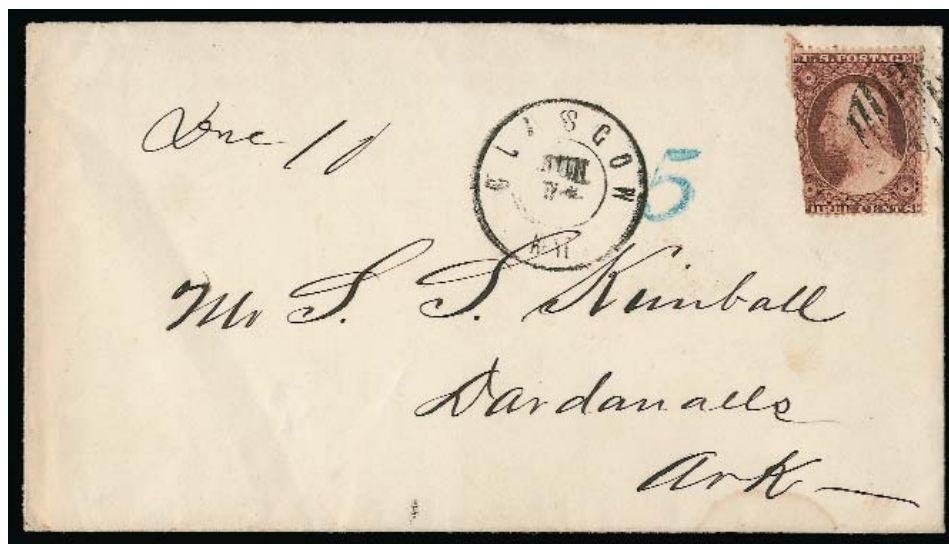 U.S. POSTAGE
THREE CENTS
Due 10
GLASGOW
5
Mr S. S. Kimball
Dardanalls
Ark